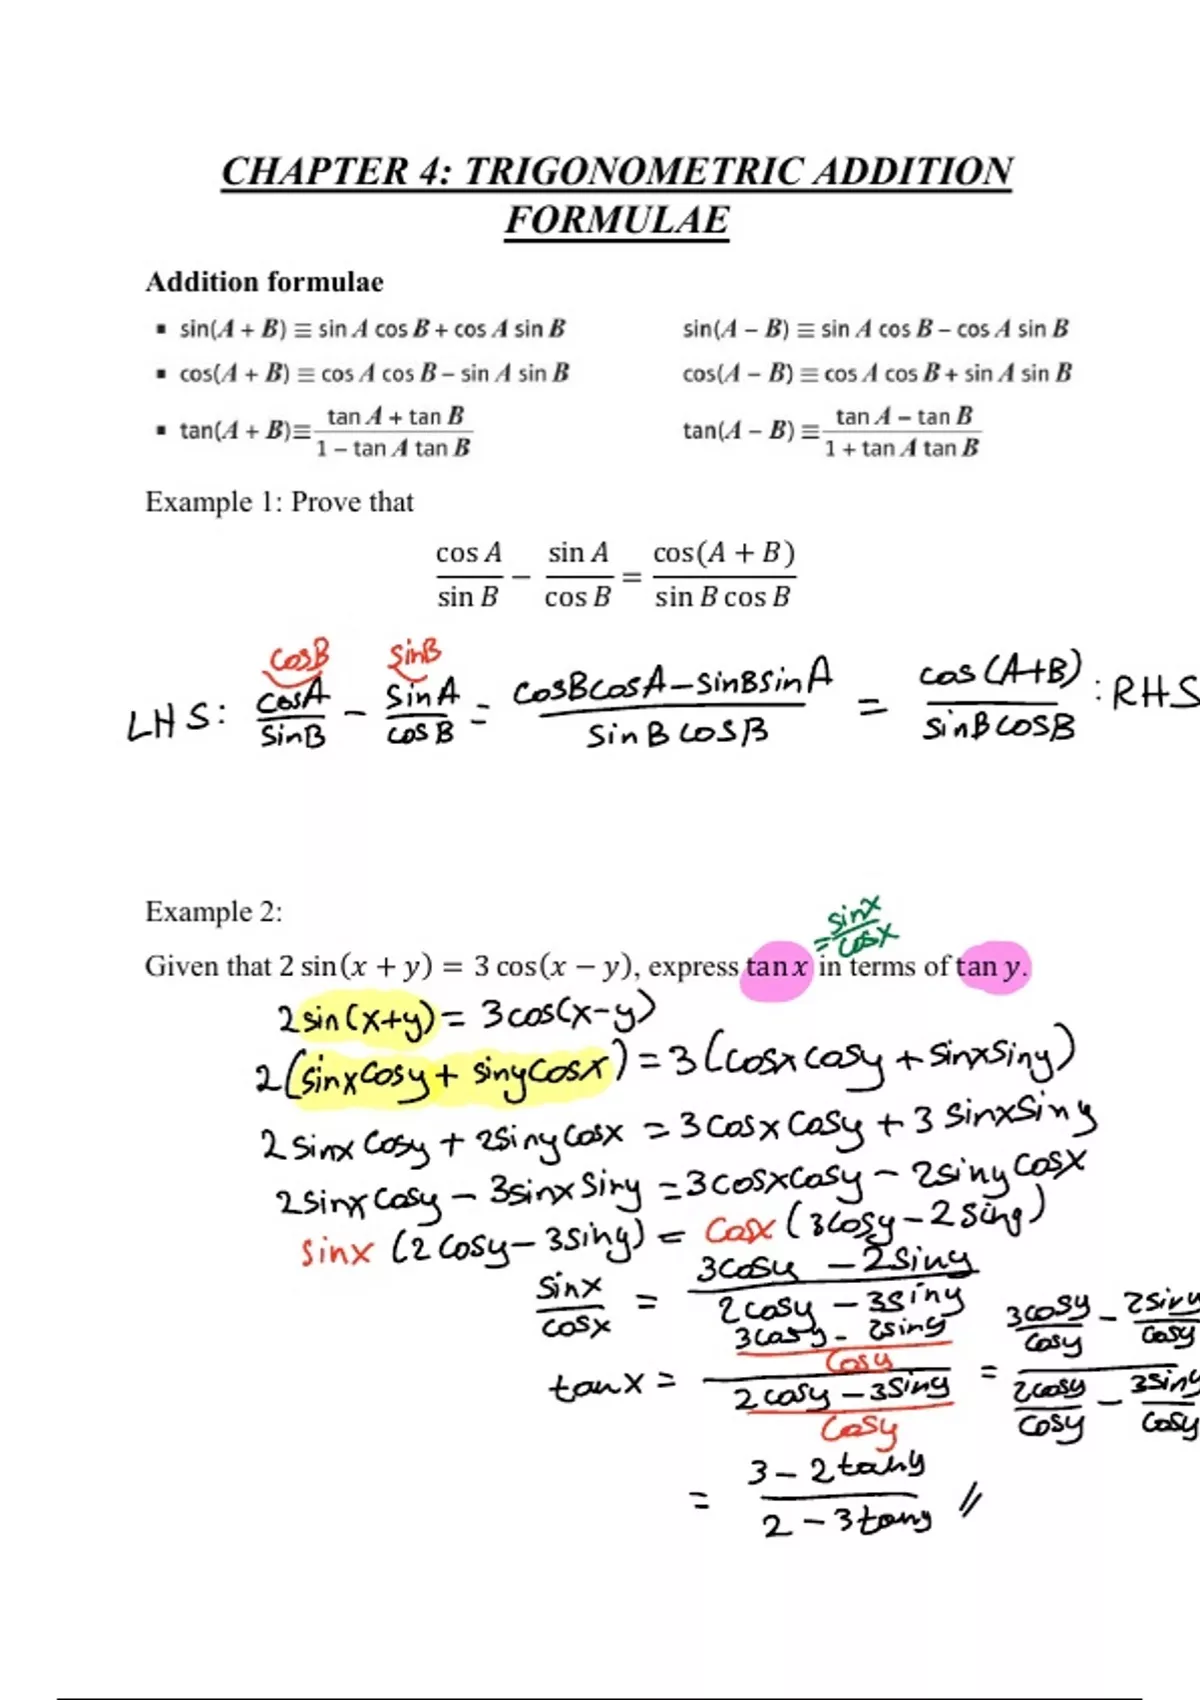 CHAPTER 4: TRIGONOMETRIC ADDITION
FORMULAE
Addition formulae
▪ sin(A + B) ≡ sin A cos B + cos A sin B    sin(A − B) ≡ sin A cos B − cos A sin B
▪ cos(A + B) ≡ cos A cos B − sin A sin B    cos(A − B) ≡ cos A cos B + sin A sin B
▪ tan(A + B) ≡ (tan A + tan B)/(1 − tan A tan B)    tan(A − B) ≡ (tan A − tan B)/(1 + tan A tan B)
Example 1: Prove that
cos A/sin B − sin A/cos B = cos(A + B)/(sin B cos B)
cosB    sinB
LHS: cosA/sinB − sinA/cosB = (cosBcosA − sinBsinA)/(sinBcosB) = cos(A+B)/(sinBcosB) : RHS
Example 2:
= sinx/cosx
Given that 2 sin(x + y) = 3 cos(x − y), express tan x in terms of tan y.
2sin(x+y) = 3cos(x-y)
2(sinxcosy + sinycosx) = 3(cosxcosy + sinxsiny)
2sinxcosy + 2sinycosx = 3cosxcosy + 3sinxsiny
2sinxcosy − 3sinxsiny = 3cosxcosy − 2sinycosx
sinx (2cosy − 3siny) = cosx (3cosy − 2siny)
sinx/cosx = (3cosy − 2siny)/(2cosy − 3siny)
tanx = ((3cosy − 2siny)/cosy)/((2cosy − 3siny)/cosy) = (3cosy/cosy − 2siny/cosy)/(2cosy/cosy − 3siny/cosy)
= (3 − 2tany)/(2 − 3tany) //